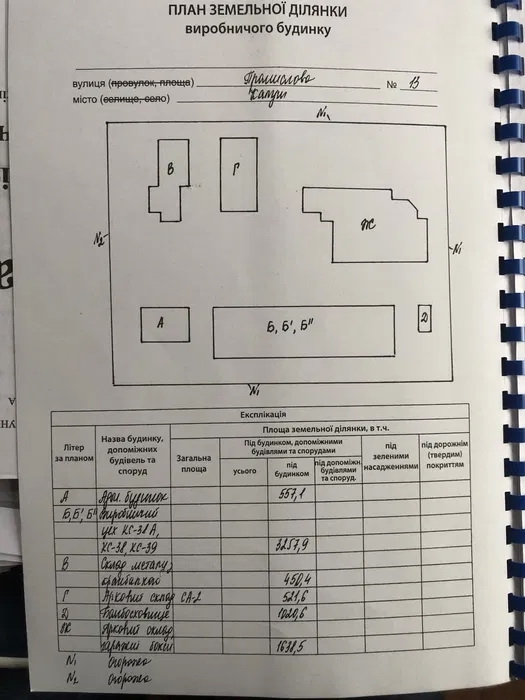 ПЛАН ЗЕМЕЛЬНОЇ ДІЛЯНКИ
виробничого будинку
вулиця (провулок, площа) Промислова № 13
місто (селище, село) Калуш
N1
В
Г
Ж
N2
N1
А
Б, Б', Б"
Д
N1
Експлікація
Літер за планом
Назва будинку, допоміжних будівель та споруд
Площа земельної ділянки, в т.ч.
Загальна площа
Під будинком, допоміжними будівлями та спорудами
усього
під будинком
під допоміжн. будівлями та споруд.
під зеленими насадженнями
під дорожнім (твердим) покриттям
А Адм. будинок 557,1
Б,Б', Б" Виробничий
цех КС-38 А,
КС-38, КС-39 3257,9
В Склад металу,
450,4
Г Арковий склад СА-2 521,6
Д 1020,6
Ж Арковий склад,
гаражні бокси 1638,5
N1 Огорожа
N2 Огорожа